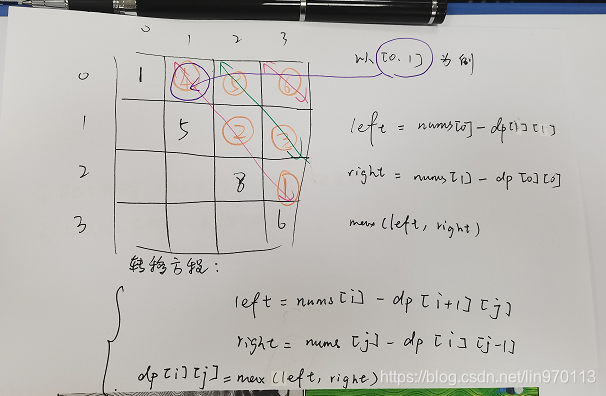 0 1 2 3
以 [0,1] 为例
0 1 ④ ⑤ ⑥
1 5 ② ③
left = nums[0] - dp[1][1]
2 8 ①
right = nums[1] - dp[0][0]
3 6
max(left, right)
转移方程:
left = nums[i] - dp[i+1][j]
right = nums[j] - dp[i][j-1]
dp[i][j] = max(left, right)
https://blog.csdn.net/lin970113